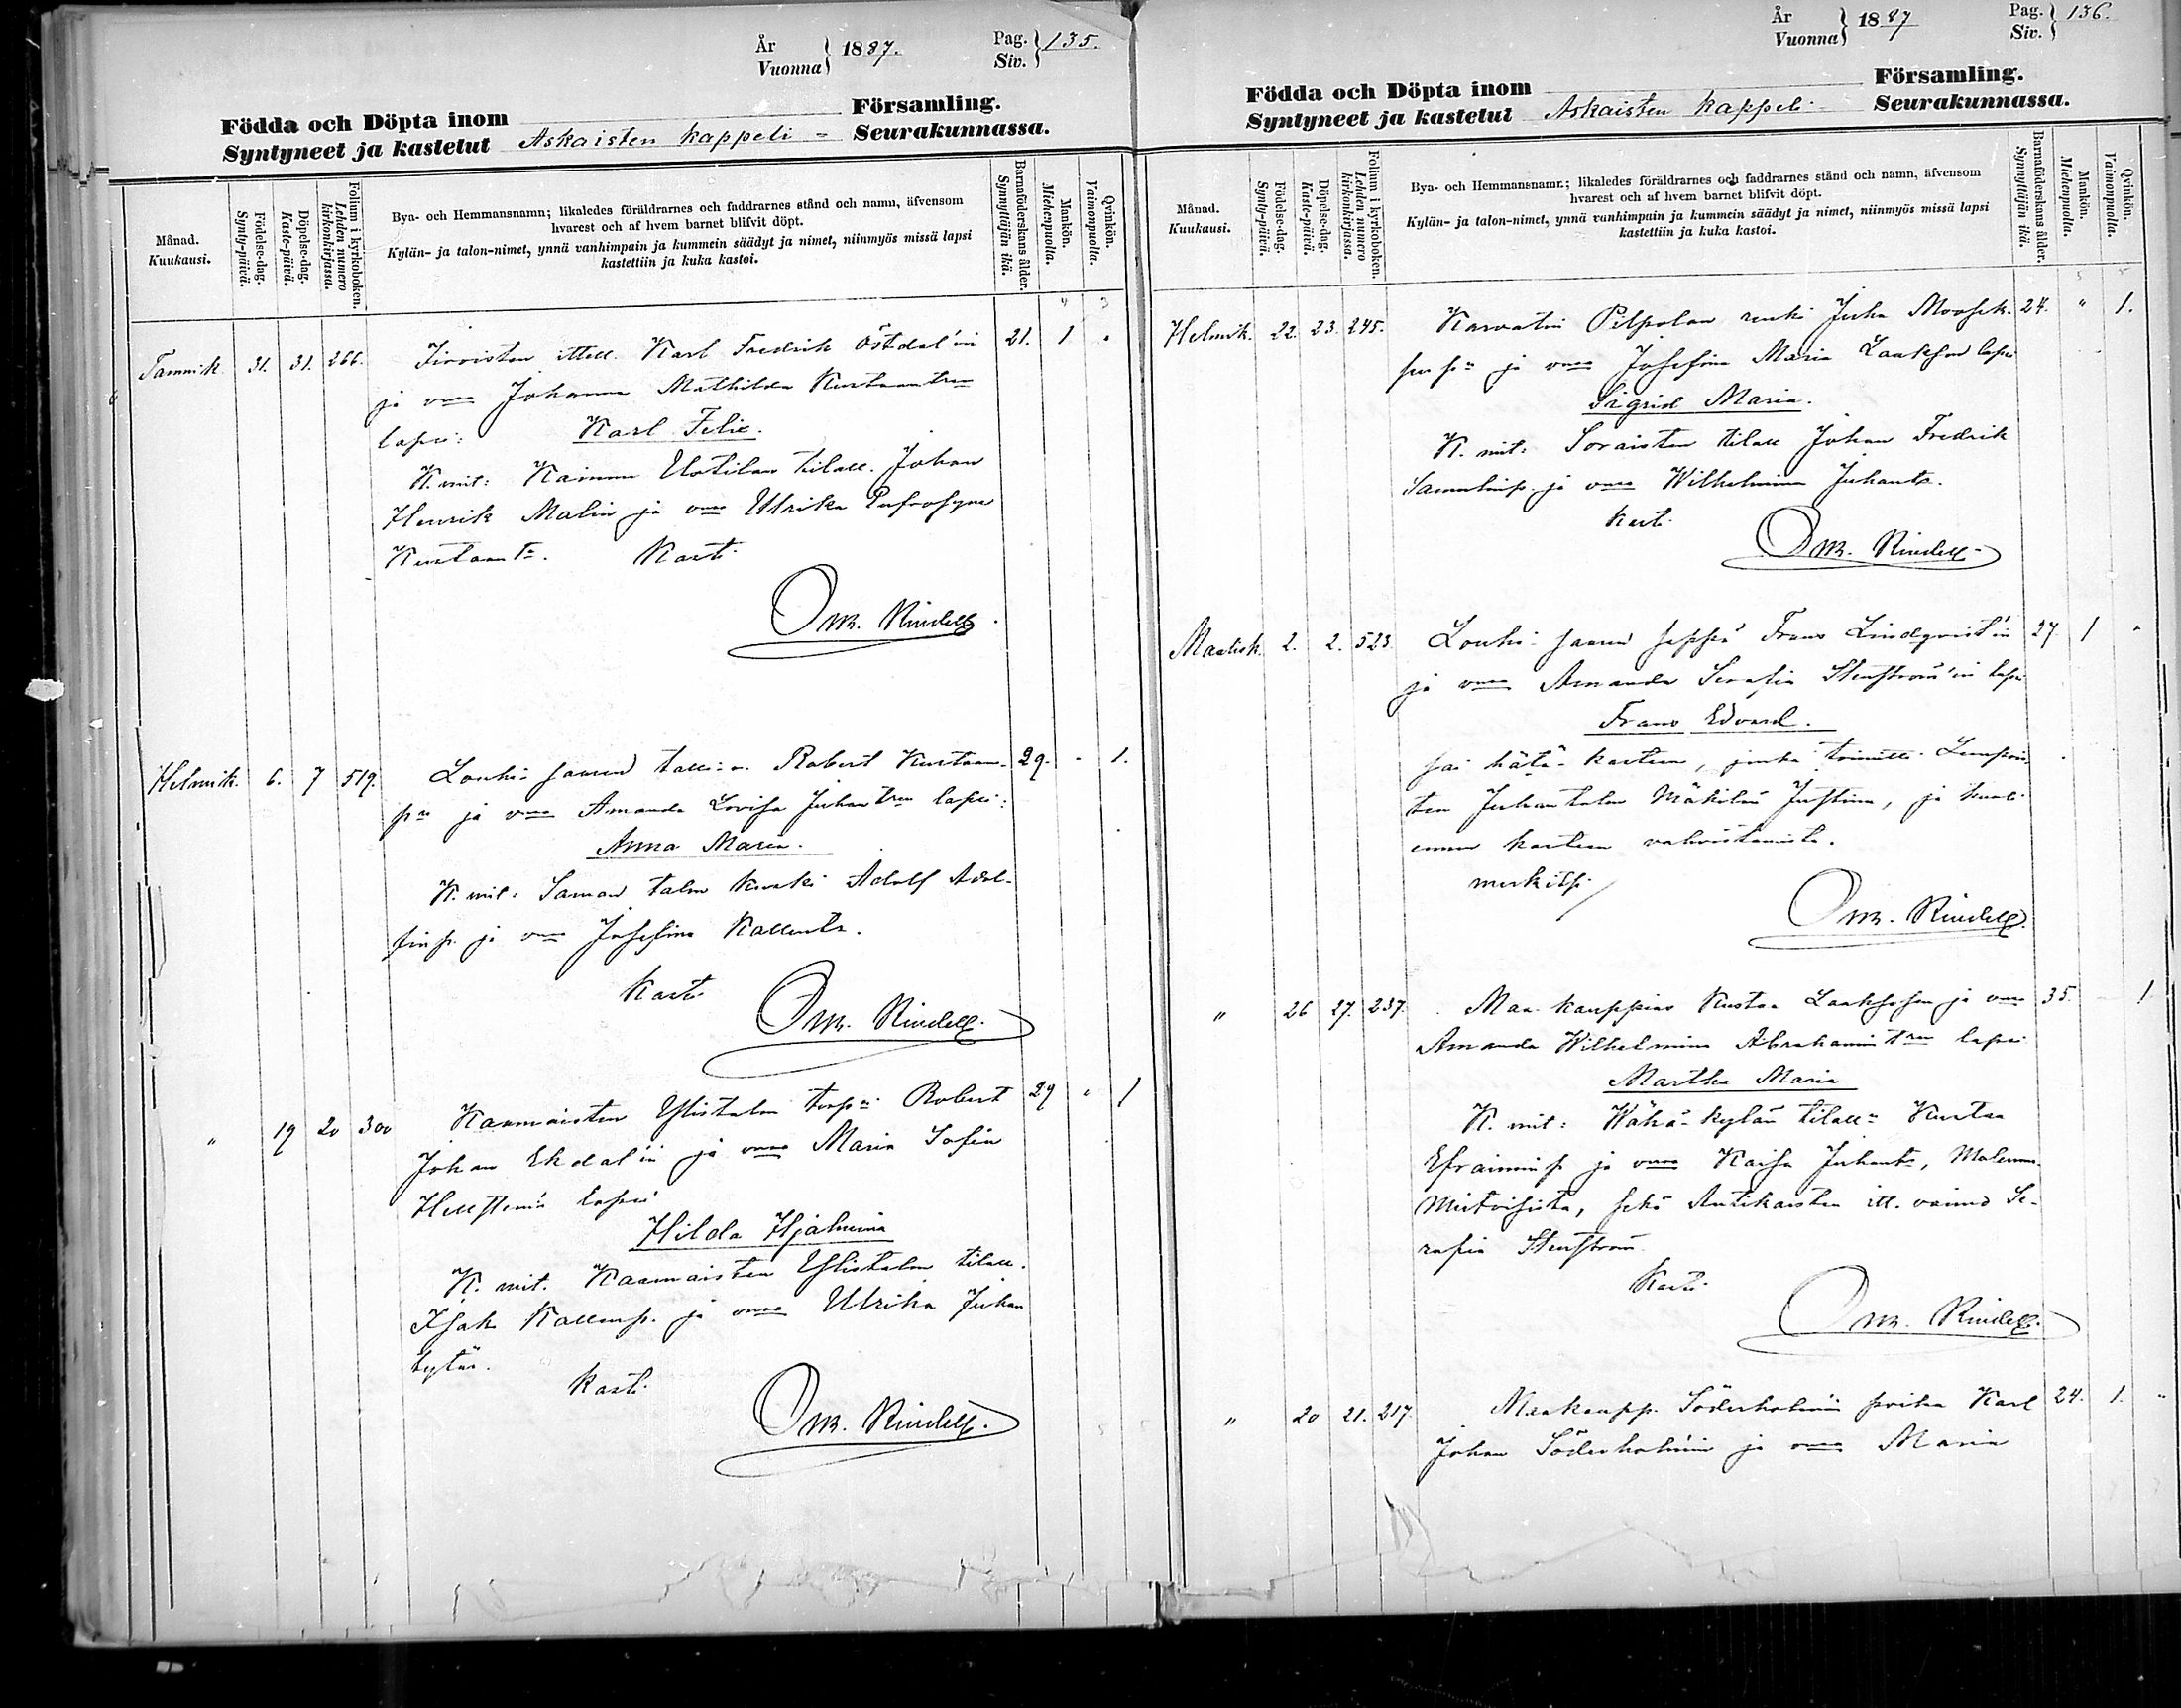 År
Vuonna } 1887.
Pag.
Siv. } 135.
Födda och Döpta inom Församling.
Syntyneet ja kastetut Askaisten kappeli - Seurakunnassa.
Månad.
Kuukausi.
Födelse-dag.
Synty-päivä.
Döpelse-dag.
Kaste-päivä.
Folium i kyrkoboken.
Lehden numero kirkonkirjassa.
Bya- och Hemmansnamn; likaledes föräldrarnes och faddrarnes stånd och namn, äfvensom
hvarest och af hvem barnet blifvit döpt.
Kylän- ja talon-nimet, ynnä vanhimpain ja kummein säädyt ja nimet, niinmyös missä lapsi
kastettiin ja kuka kastoi.
Barnaföderskans ålder.
Synnyttäjän ikä.
Mankön.
Miehenpuolia.
Qvinkön.
Vaimonpuolia.
4 3
Tammik. 31. 31. 266. Karl Fredrik Östdal'in 21. 1
ja vmo Johanna Mathilda Kustaantren
lapsi: Karl Felix.
K. mit: Kaimen Uotilan tilall. Johan
Henrik Malin ja vmo Ulrika
Kustaant. Kasti
Om. Rindell.
Helmik. 6. 7 519. Louhi-saaren Robert Kustaan- 29. 1.
pn ja vmo Amanda Lovisa Juhantren lapsi:
Anna Maria.
K. mit: talon Adolf Adol-
finp. ja vmo Josefina Kallentr.
Kasti
Om. Rindell.
" 19 20 300 Kaamaisten Ylistalon torp. Robert 29 " 1
Johan Ekdal'in ja vmo Maria Sofia
Hellsten'in lapsi
Hilda Hjalmina
K. mit. Kaamaisten Ylistalon tilall.
Isak Kallenp. ja vmo Ulrika Juhan
tytär.
Kasti
Om. Rindell.
År
Vuonna } 1887
Pag.
Siv. } 136.
Födda och Döpta inom Församling.
Syntyneet ja kastetut Askaisten kappeli - Seurakunnassa.
Månad.
Kuukausi.
Födelse-dag.
Synty-päivä.
Döpelse-dag.
Kaste-päivä.
Folium i kyrkoboken.
Lehden numero kirkonkirjassa.
Bya- och Hemmansnamn; likaledes föräldrarnes och faddrarnes stånd och namn, äfvensom
hvarest och af hvem barnet blifvit döpt.
Kylän- ja talon-nimet, ynnä vanhimpain ja kummein säädyt ja nimet, niinmyös missä lapsi
kastettiin ja kuka kastoi.
Barnaföderskans ålder.
Synnyttäjän ikä.
Mankön.
Miehenpuolia.
Qvinkön.
Vaimonpuolia.
5 5
Helmik. 22. 23. 245. Karvatin Pilpolan renki Juha 24. " 1.
ja vmo Josefina Maria lapsi
Sigrid Maria.
K. mit: Soraisten tilall Johan Fredrik
ja vmo Wilhelmina Juhantr.
Kasti
Om. Rindell.
Maalisk. 2. 2. 523. Louhi-saaren seppä Frans Lindqvist'in 27. 1 "
ja vmo Amanda Serafia Stenström'in lapsi
Frans Edvard.
sai hätä-kasteen, jonka toimitti
ten Juhantalon Mäkilän Justina, ja kuoli
ennen kasteen vahvistamista.
merkitsi
Om. Rindell.
" 26 27. 237. Maa-kauppias Kustaa Laaksosen ja vmo 35. 1
Amanda Wilhelmina Abrahamintren lapsi
Martha Maria
K. mit: Wähä-kylän tilall Kustaa
Efraiminp ja vmo Kaisa Juhantr,
sekä Antikaisten itt. vaimo Se-
rafia Stenström
Kasti
Om. Rindell.
" 20 21. 217. Maakaupp. Söderholm'in poika Karl 24. 1. "
Johan Söderholm'in ja vmo Maria